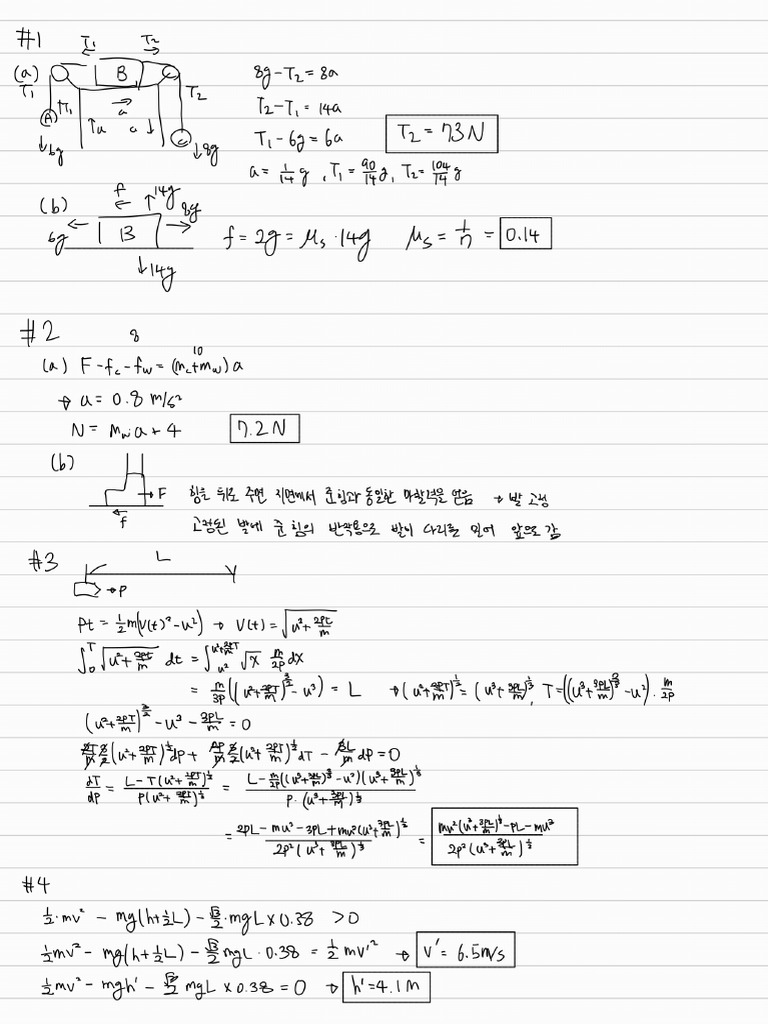 #1
(a)
T₁ T₂
B
T₁ T₂
A
a a a
6g 8g
8g-T₂ = 8a
T₂-T₁ = 14a
T₁-6g = 6a
T₂ = 73N
a = 1/14 g , T₁ = 90/14 g, T₂ = 104/14 g
(b)
f 14g 8g
6g B
14g
f = 2g = μs·14g μs = 1/7 = 0.14
#2
8 10
(a) F-fc-fw = (mc+mw)a
→ a = 0.8 m/s²
N = mw·a + 4 7.2N
(b)
F
f
힘을 뒤로 주면 지면에서 준힘과 동일한 마찰력을 얻음 → 발 고정
고정된 발에 준 힘의 반작용으로 발이 다리를 밀어 앞으로 감
#3
L
→ P
Pt = ½m(V(t)²-u²) → V(t) = √(u²+2Pt/m)
∫₀ᵀ √(u²+2Pt/m) dt = ∫_{u²}^{u²+2PT/m} √x m/2P dx
= m/3P((u²+2PT/m)^{3/2}-u³) = L → (u²+2PT/m)^{1/2} = (u³+3PL/m)^{1/3}, T = ((u³+3PL/m)^{2/3}-u²)·m/2P
(u²+2PT/m)^{3/2} - u³ - 3PL/m = 0
dT/dP = (L-T(u²+2PT/m)^{1/2})/(P(u²+2PT/m)^{1/2}) = (L-m/2P((u³+3PL/m)^{2/3}-u²)(u³+3PL/m)^{1/3})/(P·(u³+3PL/m)^{1/3})
= (2PL-mu³-3PL+mu²(u³+3PL/m)^{1/3})/(2P²(u³+3PL/m)^{1/3}) = (mu²(u³+3PL/m)^{1/3}-PL-mu³)/(2P²(u³+3PL/m)^{1/3})
#4
½·mv² - mg(h+½L) - √3/2·mgL×0.38 > 0
½mv² - mg(h+½L) - √3/2 mgL·0.38 = ½mv'² → v' = 6.5m/s
½mv² - mgh' - √3/2 mgL×0.38 = 0 → h' = 4.1m